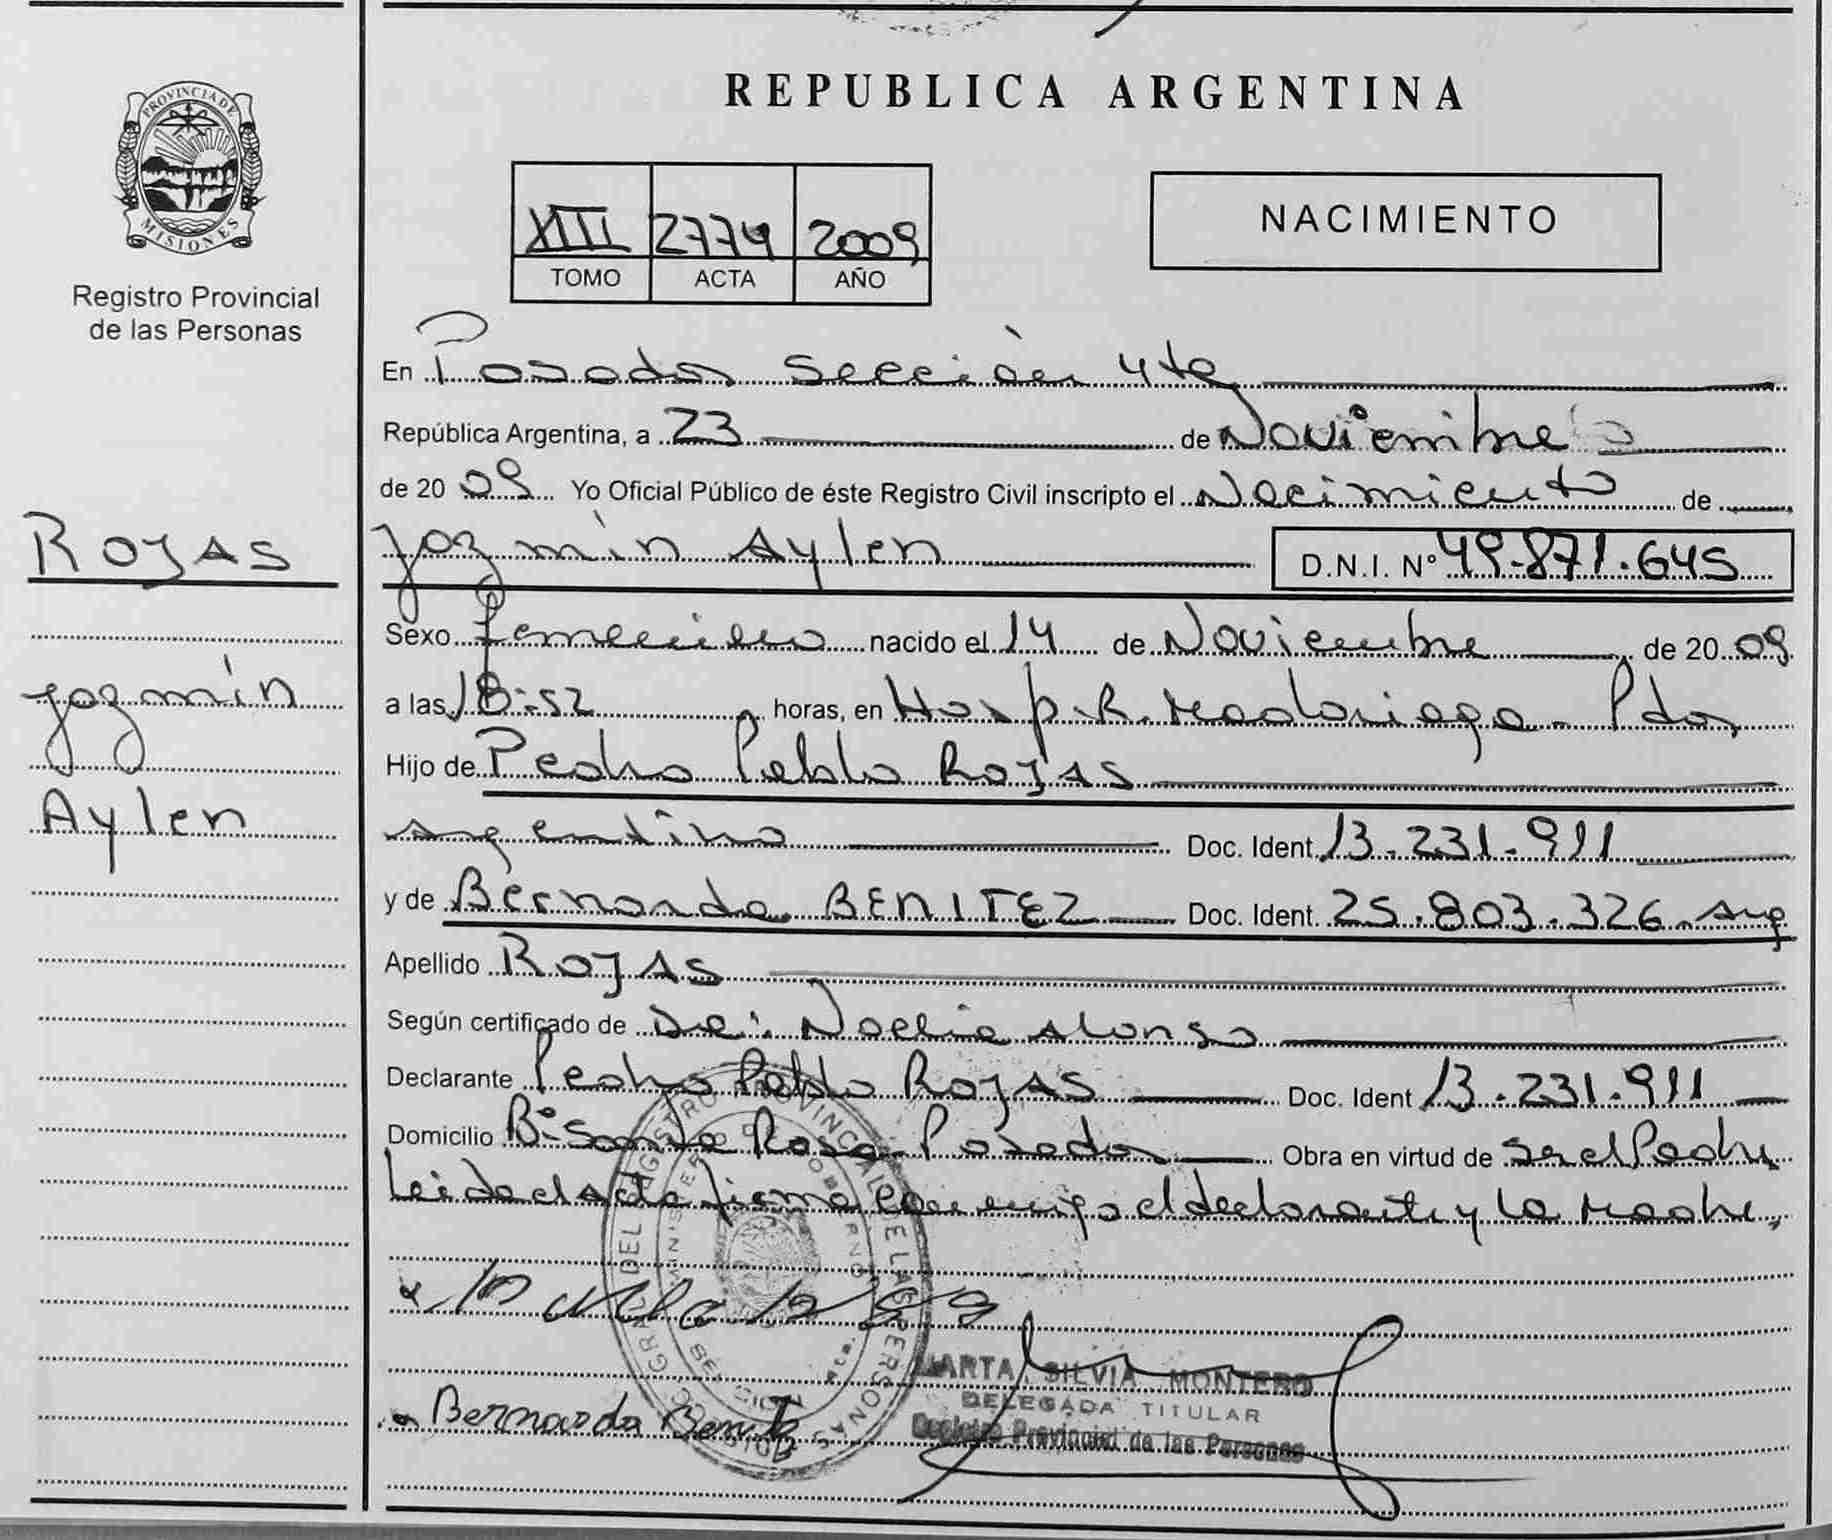 PROVINCIA DE
MISIONES
Registro Provincial
de las Personas
ROJAS
Jazmín
Aylen
REPUBLICA ARGENTINA
XIII 2774 2009
TOMO ACTA AÑO
NACIMIENTO
En Posadas Sección 4ta
República Argentina, a 23 de Noviembre
de 2009 Yo Oficial Público de éste Registro Civil inscripto el Nacimiento de
Jazmín Aylen D.N.I. Nº 49.871.645
Sexo femenino nacido el 14 de Noviembre de 2009
a las 18:52 horas, en Hosp. R. Madariaga - Pdas
Hijo de Pedro Pablo ROJAS
Argentino Doc. Ident. 13.231.911
y de Bernarda BENITEZ Doc. Ident. 25.803.326. Arg
Apellido ROJAS
Según certificado de Dra: Noelia Alonso
Declarante Pedro Pablo ROJAS Doc. Ident 13.231.911
Domicilio Bº Santa Rosa Posadas Obra en virtud de ser el Padre,
Leida el Acta firma conmigo el declarante y la Madre,
MARTA SILVIA MONTERO
DELEGADA TITULAR
Registro Provincial de las Personas
Bernarda Benitez